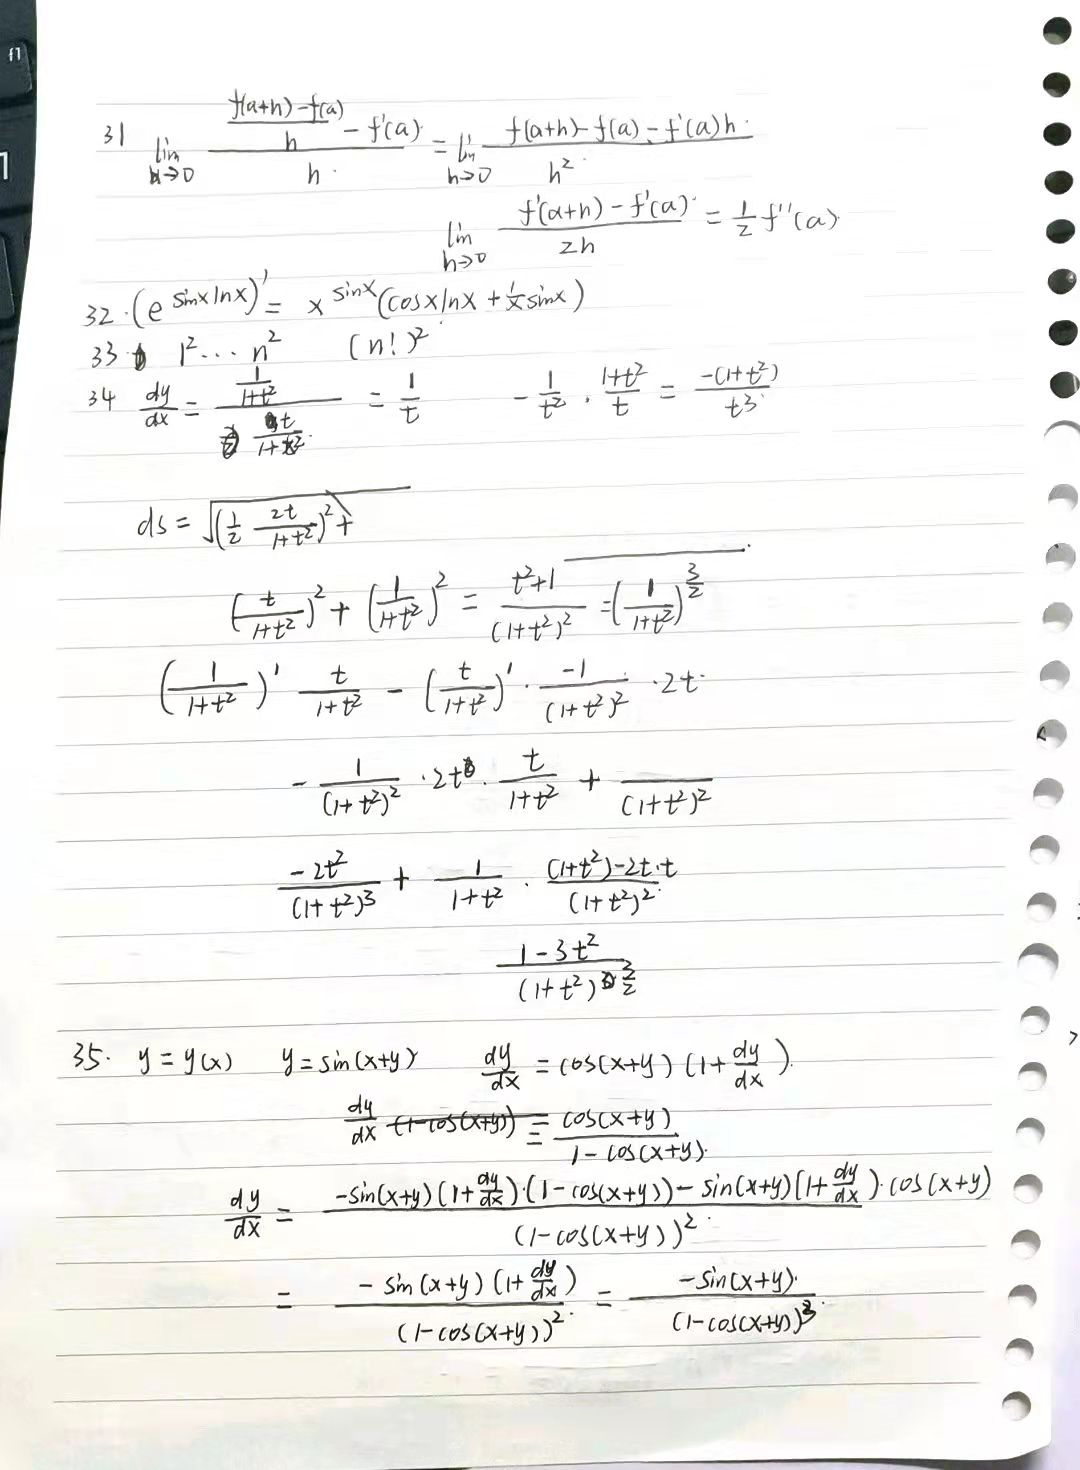 f1
31 lim_{h→0} \frac{\frac{f(a+h)-f(a)}{h} - f'(a)}{h} = lim_{h→0} \frac{f(a+h)-f(a)-f'(a)h}{h^2}
lim_{h→0} \frac{f'(a+h)-f'(a)}{2h} = \frac{1}{2} f''(a)
32. (e^{sinx lnx})' = x^{sinx} (cosx lnx + \frac{1}{x} sinx)
33 1^2 ··· n^2 (n!)^2
34 \frac{dy}{dx} = \frac{\frac{1}{1+t^2}}{\frac{t}{1+t^2}} = \frac{1}{t} -\frac{1}{t^2} · \frac{1+t^2}{t} = \frac{-(1+t^2)}{t^3}
ds = \sqrt{(\frac{1}{2} \frac{2t}{1+t^2})^2 +}
(\frac{t}{1+t^2})^2 + (\frac{1}{1+t^2})^2 = \frac{t^2+1}{(1+t^2)^2} = (\frac{1}{1+t^2})^{\frac{3}{2}}
(\frac{1}{1+t^2})' \frac{t}{1+t^2} - (\frac{t}{1+t^2})' · \frac{-1}{(1+t^2)^2} · 2t
- \frac{1}{(1+t^2)^2} · 2t · \frac{t}{1+t^2} + \frac{}{(1+t^2)^2}
\frac{-2t^2}{(1+t^2)^3} + \frac{1}{1+t^2} · \frac{(1+t^2)-2t·t}{(1+t^2)^2}
\frac{1-3t^2}{(1+t^2)^{\frac{3}{2}}}
35. y = y(x) y = sin(x+y) \frac{dy}{dx} = cos(x+y) (1+\frac{dy}{dx})
\frac{dy}{dx} (1-cos(x+y)) = \frac{cos(x+y)}{1-cos(x+y)}
\frac{dy}{dx} = \frac{-sin(x+y)(1+\frac{dy}{dx})·(1-cos(x+y)) - sin(x+y)(1+\frac{dy}{dx})·cos(x+y)}{(1-cos(x+y))^2}
= \frac{-sin(x+y)(1+\frac{dy}{dx})}{(1-cos(x+y))^2} = \frac{-sin(x+y)}{(1-cos(x+y))^3}